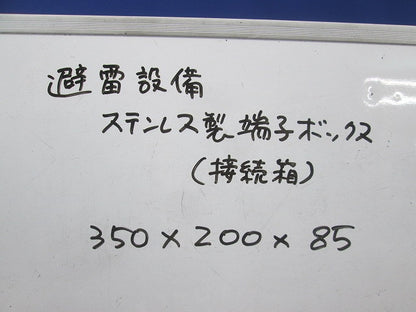 避雷設備
ステンレス製端子ボックス
(接続箱)
350×200×85